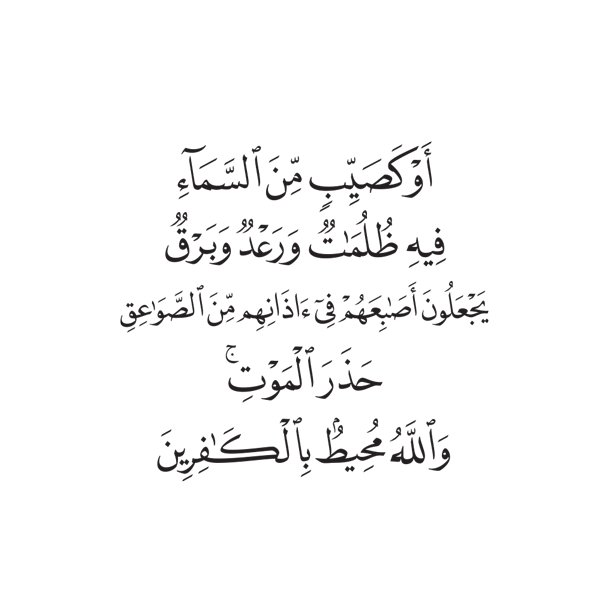 أَوْ كَصَيِّبٍ مِّنَ ٱلسَّمَآءِ
فِيهِ ظُلُمَٰتٌ وَرَعْدٌ وَبَرْقٌ
يَجْعَلُونَ أَصَٰبِعَهُمْ فِىٓ ءَاذَانِهِم مِّنَ ٱلصَّوَٰعِقِ
حَذَرَ ٱلْمَوْتِ ۚ
وَٱللَّهُ مُحِيطٌۢ بِٱلْكَٰفِرِينَ